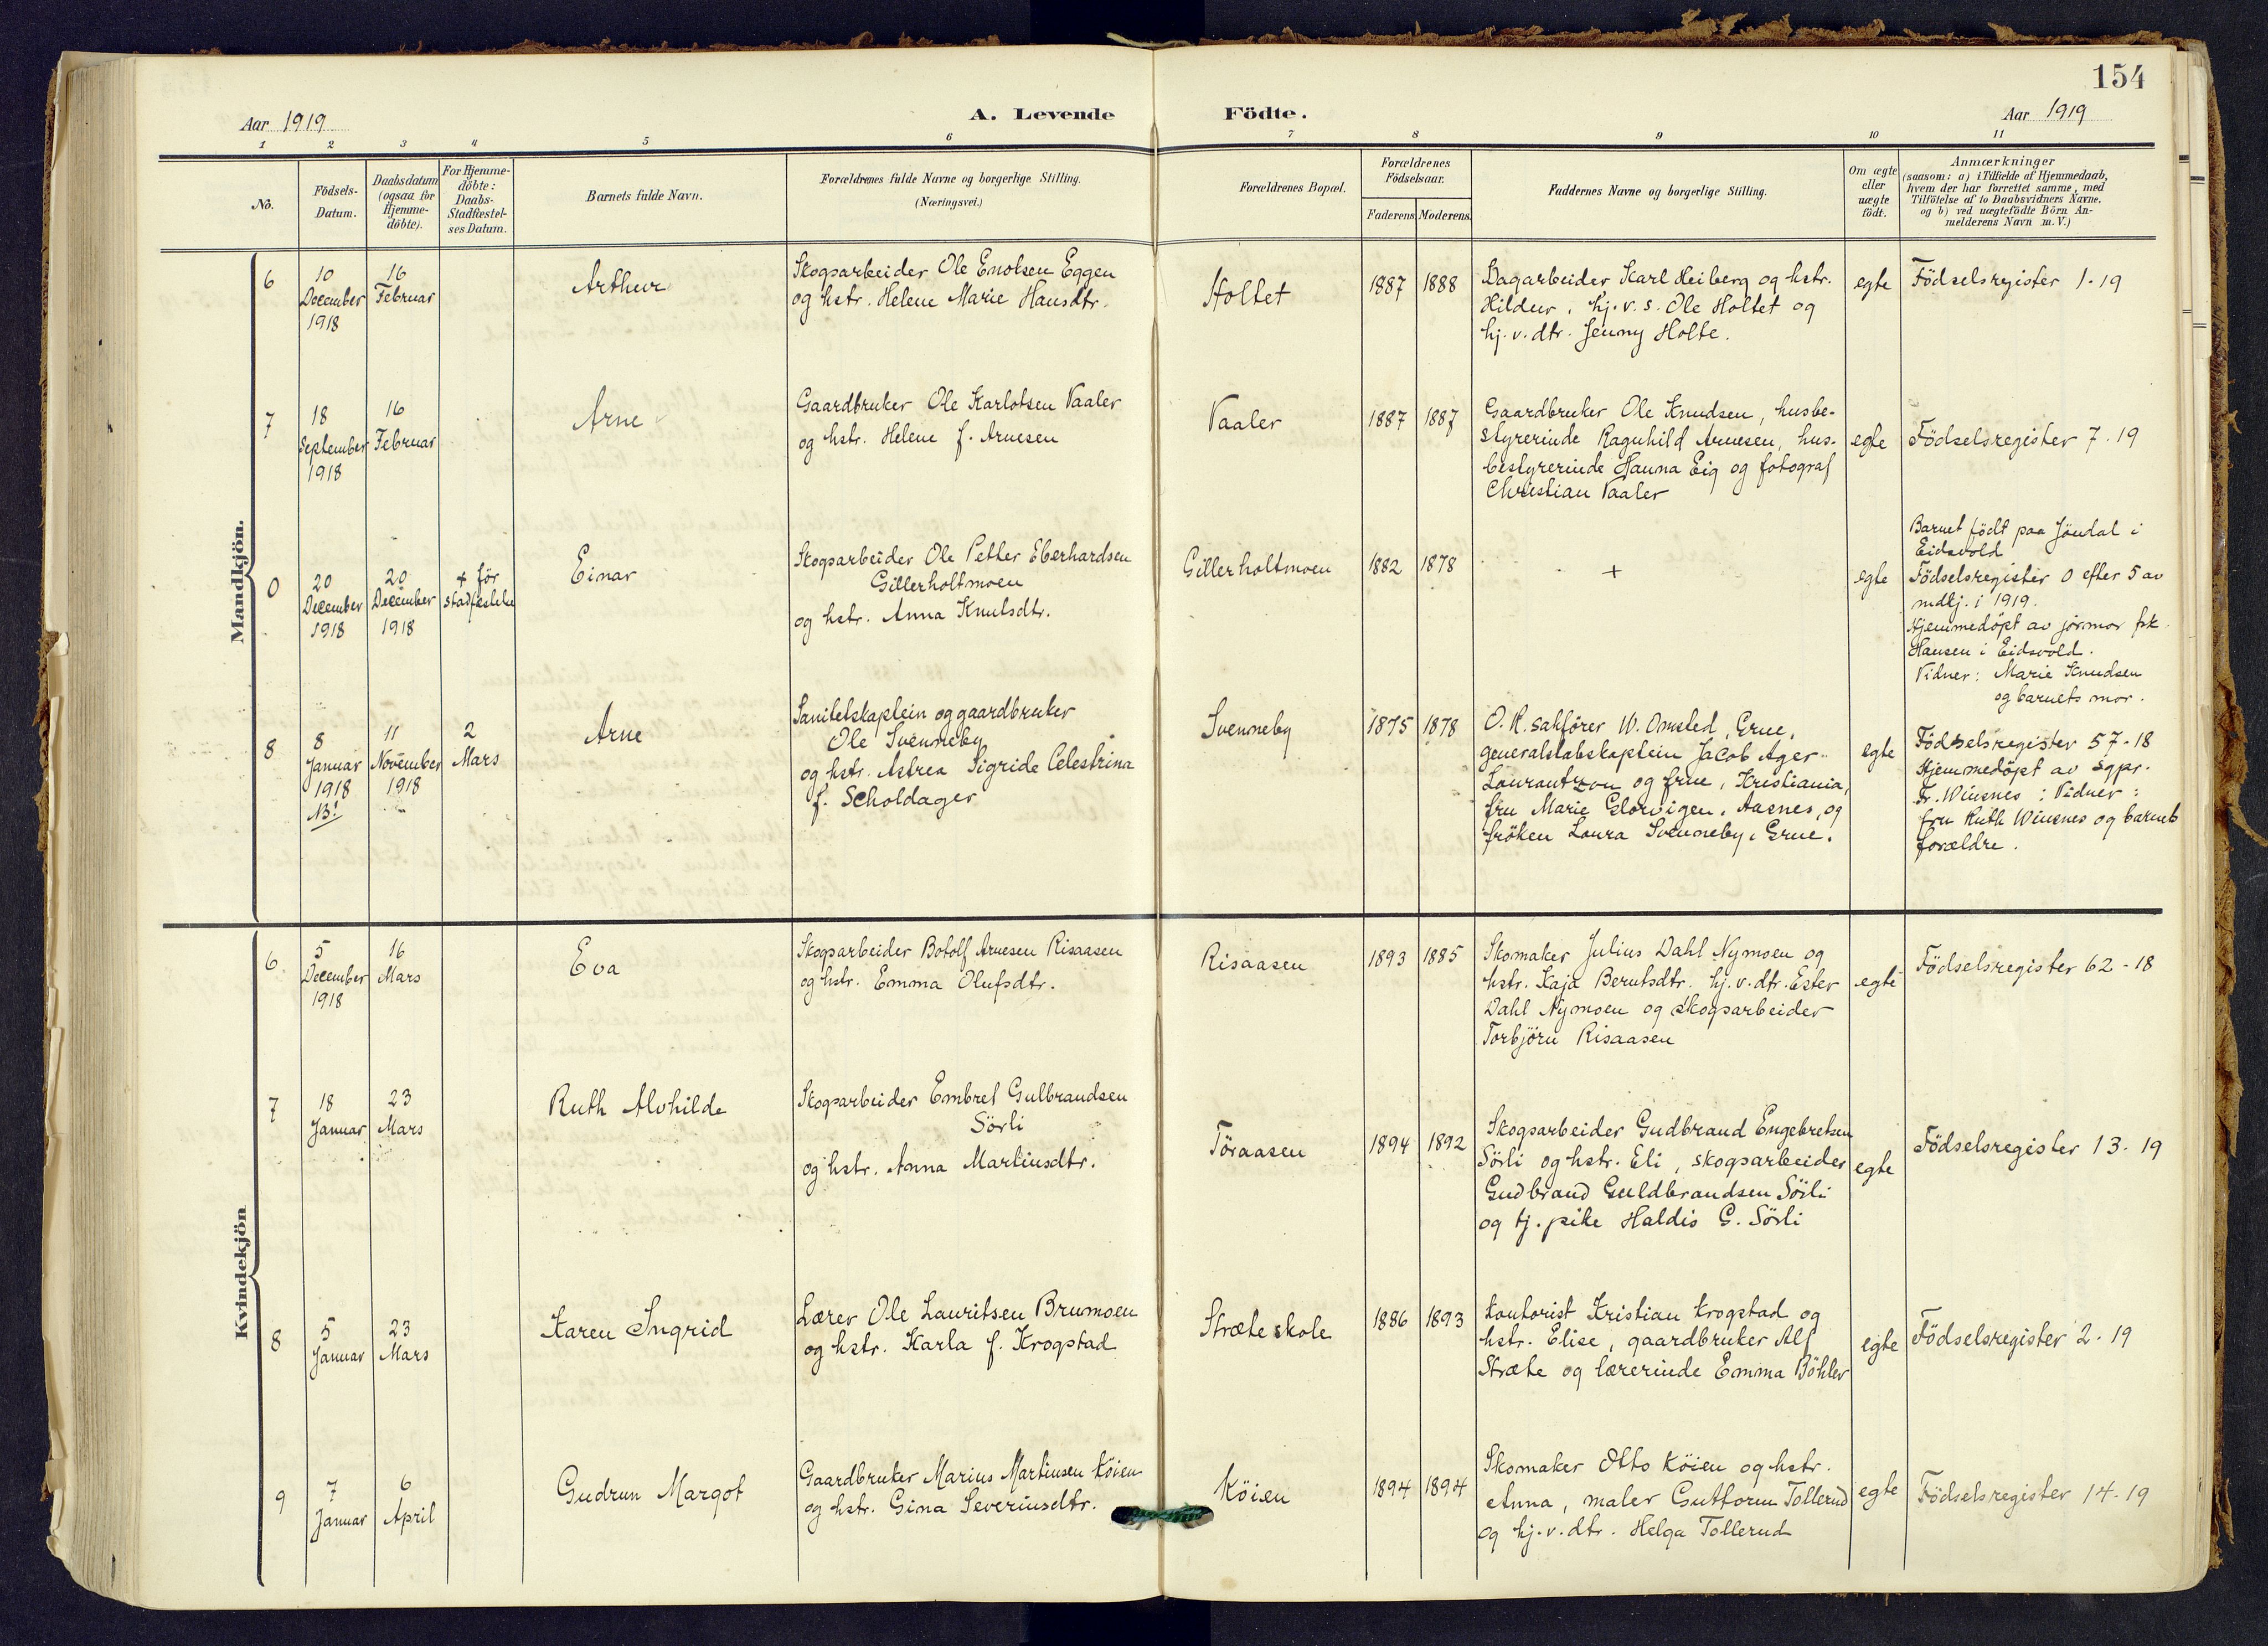 154
Aar 1919
A. Levende Födte.
Aar 1919
1 2 3 4 5 6 7 8 9 10 11
No.
Födsels-
Datum.
Daabsdatum
(ogsaa for
Hjemme-
döbte).
For Hjemme-
döbte:
Daabs-
Stadfæstel-
ses Datum.
Barnets fulde Navn.
Forældrenes fulde Navne og borgerlige Stilling.
(Næringsvei.)
Forældrenes Bopæl.
Forældrenes
Födselsaar.
Faderens. Moderens.
Faddernes Navne og borgerlige Stilling.
Om ægte
eller
uægte
födt.
Anmærkninger
(saasom: a) i Tilfælde af Hjemmedaab,
hvem der har forrettet samme, med
Tilföielse af to Daabsvidners Navne,
og b) ved uægtefödte Börn An-
melderens Navn m.V.)
Mandkjön.
6
10
December
1918
16
Februar
Arthur
Skogsarbeider Ole Enotsen Eggen
og hstr. Helene Marie Hansdtr.
Holtet
1887
1888
Dagarbeider Karl Heiberg og hstr.
Hildur, hj.v.s. Ole Holtet og
hj.v.dtr. Jenny Holte.
egte
Födselsregister 1-19
7
18
September
1918
16
Februar
Arne
Gaardbruker Ole Karlotsen Vaaler
og hstr. Helene f. Arnesen
Vaaler
1887
1887
Gaardbruker Ole Knudsen, husbe-
styrerinde Ragnhild Arnesen, hus-
bestyrerinde Hanna Eig og fotograf
Christian Vaaler
egte
Födselsregister 7-19
0
20
December
1918
20
December
1918
+ för
stadfæstelse
Einar
Skogsarbeider Ole Petter Eberhardsen
Gillerholtmoen
og hstr. Anna Knutsdtr.
Gillerholtmoen
1882
1878
+
egte
Barnet födt paa Jöndal i
Eidsvold
Födselsregister 0 efter 5 av
mdkj. i 1919.
Hjemmedöpt av jormor frk.
Hansen i Eidsvold.
Vidner: Marie Knudsen
og barnets mor.
8
8
Januar
1918
NB!
11
November
1918
2
Mars
Arne
Sanitetskaptein og gaardbruker
Ole Svenneby
og hstr. Astrea Sigride Celestrina
f. Scholdager
Svenneby
1875
1878
O.R. sakförer W. Omsted, Grue,
generalstabskaptein Jacob Ager
Laurantzon og frue, Kristiania,
fru Marie Glorvigen, Aasnes, og
fröken Laura Svenneby, Grue.
egte
Födselsregister 57-18
Hjemmedöpt av sgpr.
Fr. Winsnes; Vidner:
fru Ruth Winsnes og barnets
forældre.
Kvindekjön
6
5
December
1918
16
Mars
Eva
Skogsarbeider Botolf Arnesen Risaasen
og hstr. Emma Olufsdtr.
Risaasen
1893
1885
Skomaker Julius Dahl Nymoen og
hstr. Kaja Berntsdtr. hj.v.dtr. Ester
Dahl Nymoen og skogsarbeider
Torbjörn Risaasen
egte
Födselsregister 62-18
7
18
Januar
23
Mars
Ruth Alvhilde
Skogsarbeider Embret Gulbrandsen
Sörli
og hstr. Anna Martinsdtr.
Töraasen
1894
1892
Skogsarbeider Gudbrand Engebretsen
Sörli og hstr. Eli, skogsarbeider
Gudbrand Guldbrandsen Sörli
og tj. pike Haldis G. Sörli
egte
Födselsregister 13-19
8
5
Januar
23
Mars
Karen Ingrid
Lærer Ole Lauritsen Brumoen
og hstr. Karla f. Krogstad
Stræte skole
1886
1893
Kontorist Kristian Krogstad og
hstr. Elise, gaardbruker Alf
Stræte og lærerinde Emma Böhler
egte
Födselsregister 2-19
9
7
Januar
6
April
Gudrun Margot
Gaardbruker Marius Martinsen Köien
og hstr. Gina Severinsdtr.
Köien
1894
1894
Skomaker Otto Köien og hstr.
Anna, maler Guttorm Tollerud
og hj.v.dtr. Helga Tollerud
egte
Födselsregister 14-19